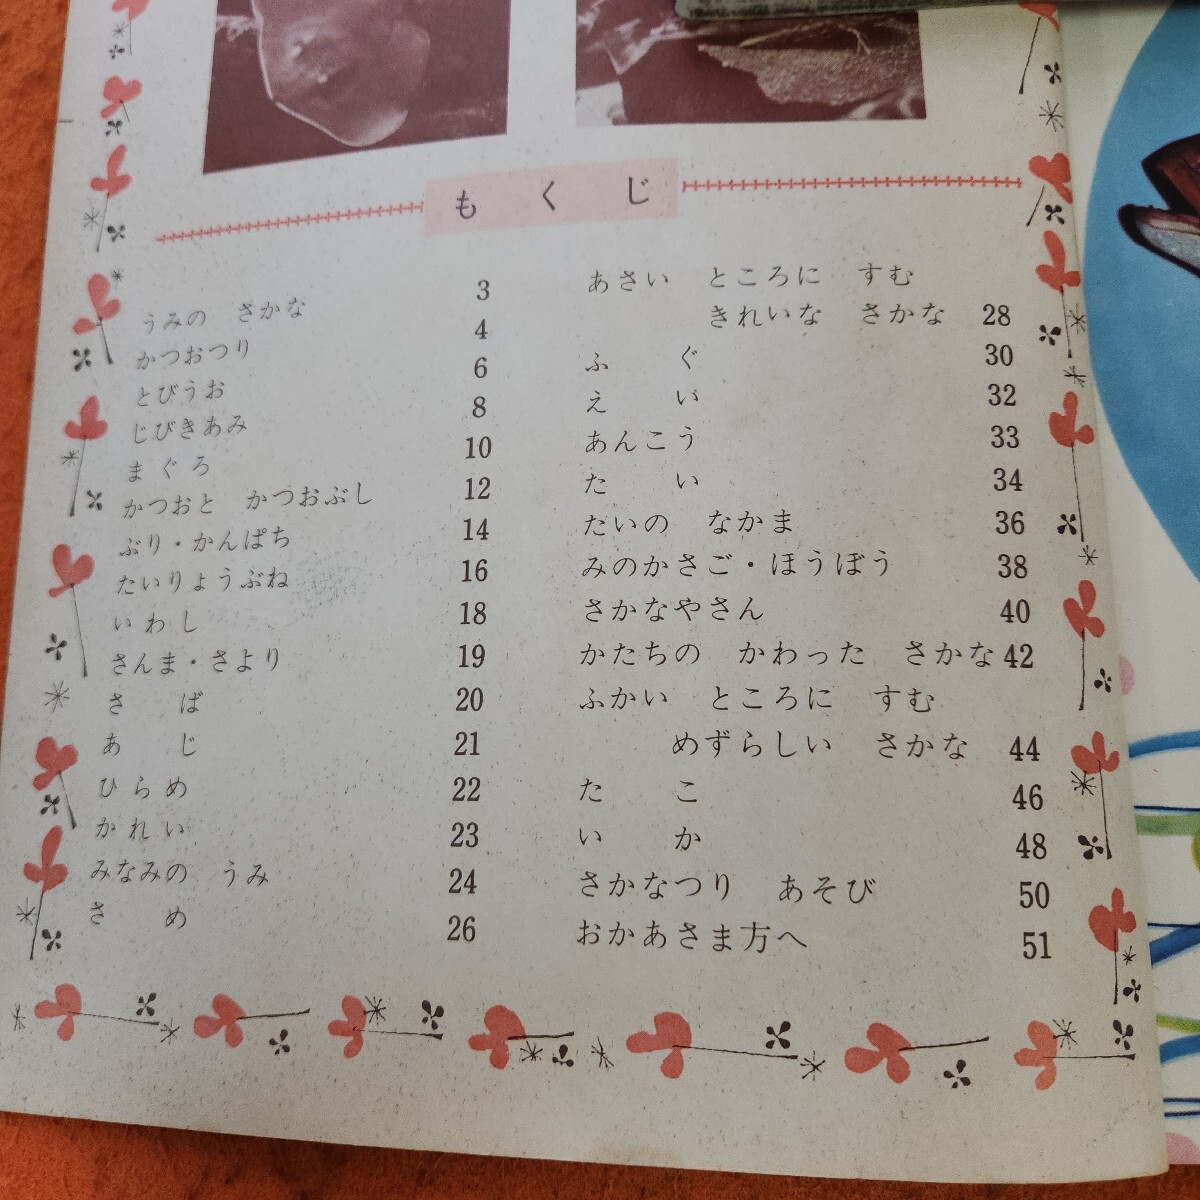 もくじ
うみの さかな 3
かつおつり 4
とびうお 6
じびきあみ 8
まぐろ 10
かつおと かつおぶし 12
ぶり・かんぱち 14
たいりょうぶね 16
いわし 18
さんま・さより 19
さば 20
あじ 21
ひらめ 22
かれい 23
みなみの うみ 24
さめ 26
あさい ところに すむ
きれいな さかな 28
ふぐ 30
えい 32
あんこう 33
たい 34
たいの なかま 36
みのかさご・ほうぼう 38
さかなやさん 40
かたちの かわった さかな 42
ふかい ところに すむ
めずらしい さかな 44
たこ 46
いか 48
さかなつり あそび 50
おかあさま方へ 51